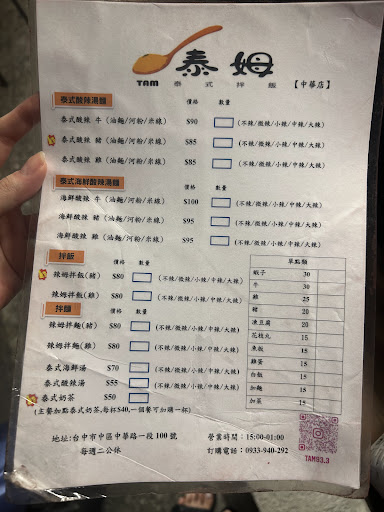 TAM
泰姆
泰式拌飯
【中華店】
泰式酸辣湯麵 價格 數量
泰式酸辣 牛(油麵/河粉/米線) $90 (不辣/微辣/小辣/中辣/大辣)
泰式酸辣 豬(油麵/河粉/米線) $85 (不辣/微辣/小辣/中辣/大辣)
泰式酸辣 雞(油麵/河粉/米線) $85 (不辣/微辣/小辣/中辣/大辣)
泰式海鮮酸辣湯麵 價格 數量
海鮮酸辣 牛(油麵/河粉/米線) $100 (不辣/微辣/小辣/中辣/大辣)
海鮮酸辣 豬(油麵/河粉/米線) $95 (不辣/微辣/小辣/中辣/大辣)
海鮮酸辣 雞(油麵/河粉/米線) $95 (不辣/微辣/小辣/中辣/大辣)
拌飯 價格 數量
辣姆拌飯(豬) $80 (不辣/微辣/小辣/中辣/大辣)
辣姆拌飯(雞) $80 (不辣/微辣/小辣/中辣/大辣)
拌麵 價格 數量
辣姆拌麵(豬) $80 (不辣/微辣/小辣/中辣/大辣)
辣姆拌麵(雞) $80 (不辣/微辣/小辣/中辣/大辣)
泰式海鮮湯 $70 (不辣/微辣/小辣/中辣/大辣)
泰式酸辣湯 $55 (不辣/微辣/小辣/中辣/大辣)
泰式奶茶 $50
(主餐加點泰式奶茶,每杯$40,一個餐可加購一杯)
單點類
蝦子 30
牛 30
雞 25
豬 20
凍豆腐 20
花枝丸 15
魚板 15
雞蛋 15
白飯 15
加麵 15
加菜 15
地址:台中市中區中華路一段100號
每週二公休
營業時間:15:00-01:00
訂購電話:0933-940-292
TAM93.3